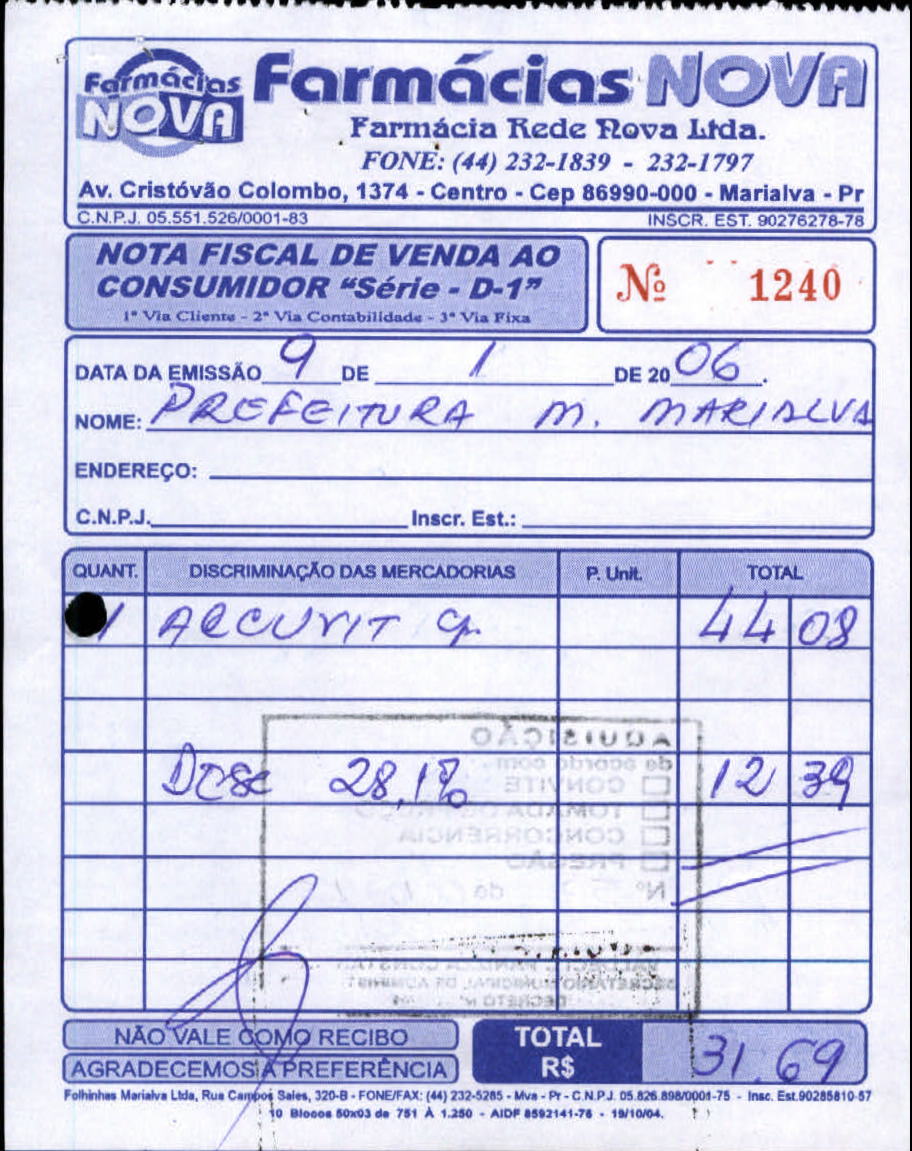 Farmácias NOVA
Farmácias NOVA
Farmácia Rede Nova Ltda.
FONE: (44) 232-1839 - 232-1797
Av. Cristóvão Colombo, 1374 - Centro - Cep 86990-000 - Marialva - Pr
C.N.P.J. 05.551.526/0001-83 INSCR. EST. 90276278-78
NOTA FISCAL DE VENDA AO
CONSUMIDOR "Série - D-1"
1ª Via Cliente - 2ª Via Contabilidade - 3ª Via Fixa
Nº 1240
DATA DA EMISSÃO 9 DE 1 DE 2006.
NOME: PREFEITURA M. MARIALVA
ENDEREÇO:
C.N.P.J. Inscr. Est.:
QUANT. DISCRIMINAÇÃO DAS MERCADORIAS P. Unit. TOTAL
1 44 08
AQUISIÇÃO
de acordo com
CONVITE
28,1% 12 39
TOMADA DE PREÇO
CONCORRÊNCIA
PREGÃO
Nº de
SECRETÁRIO MUNICIPAL DE
DECRETO Nº
NÃO VALE COMO RECIBO
AGRADECEMOS A PREFERÊNCIA
TOTAL R$ 31.69
Folhinhas Marialva Ltda, Rua Campos Sales, 320-B - FONE/FAX: (44) 232-5285 - Mva - Pr - C.N.P.J. 05.826.898/0001-75 - Insc. Est.90285810-57
10 Blocos 50x03 de 751 À 1.250 - AIDF 8592141-76 - 19/10/04.